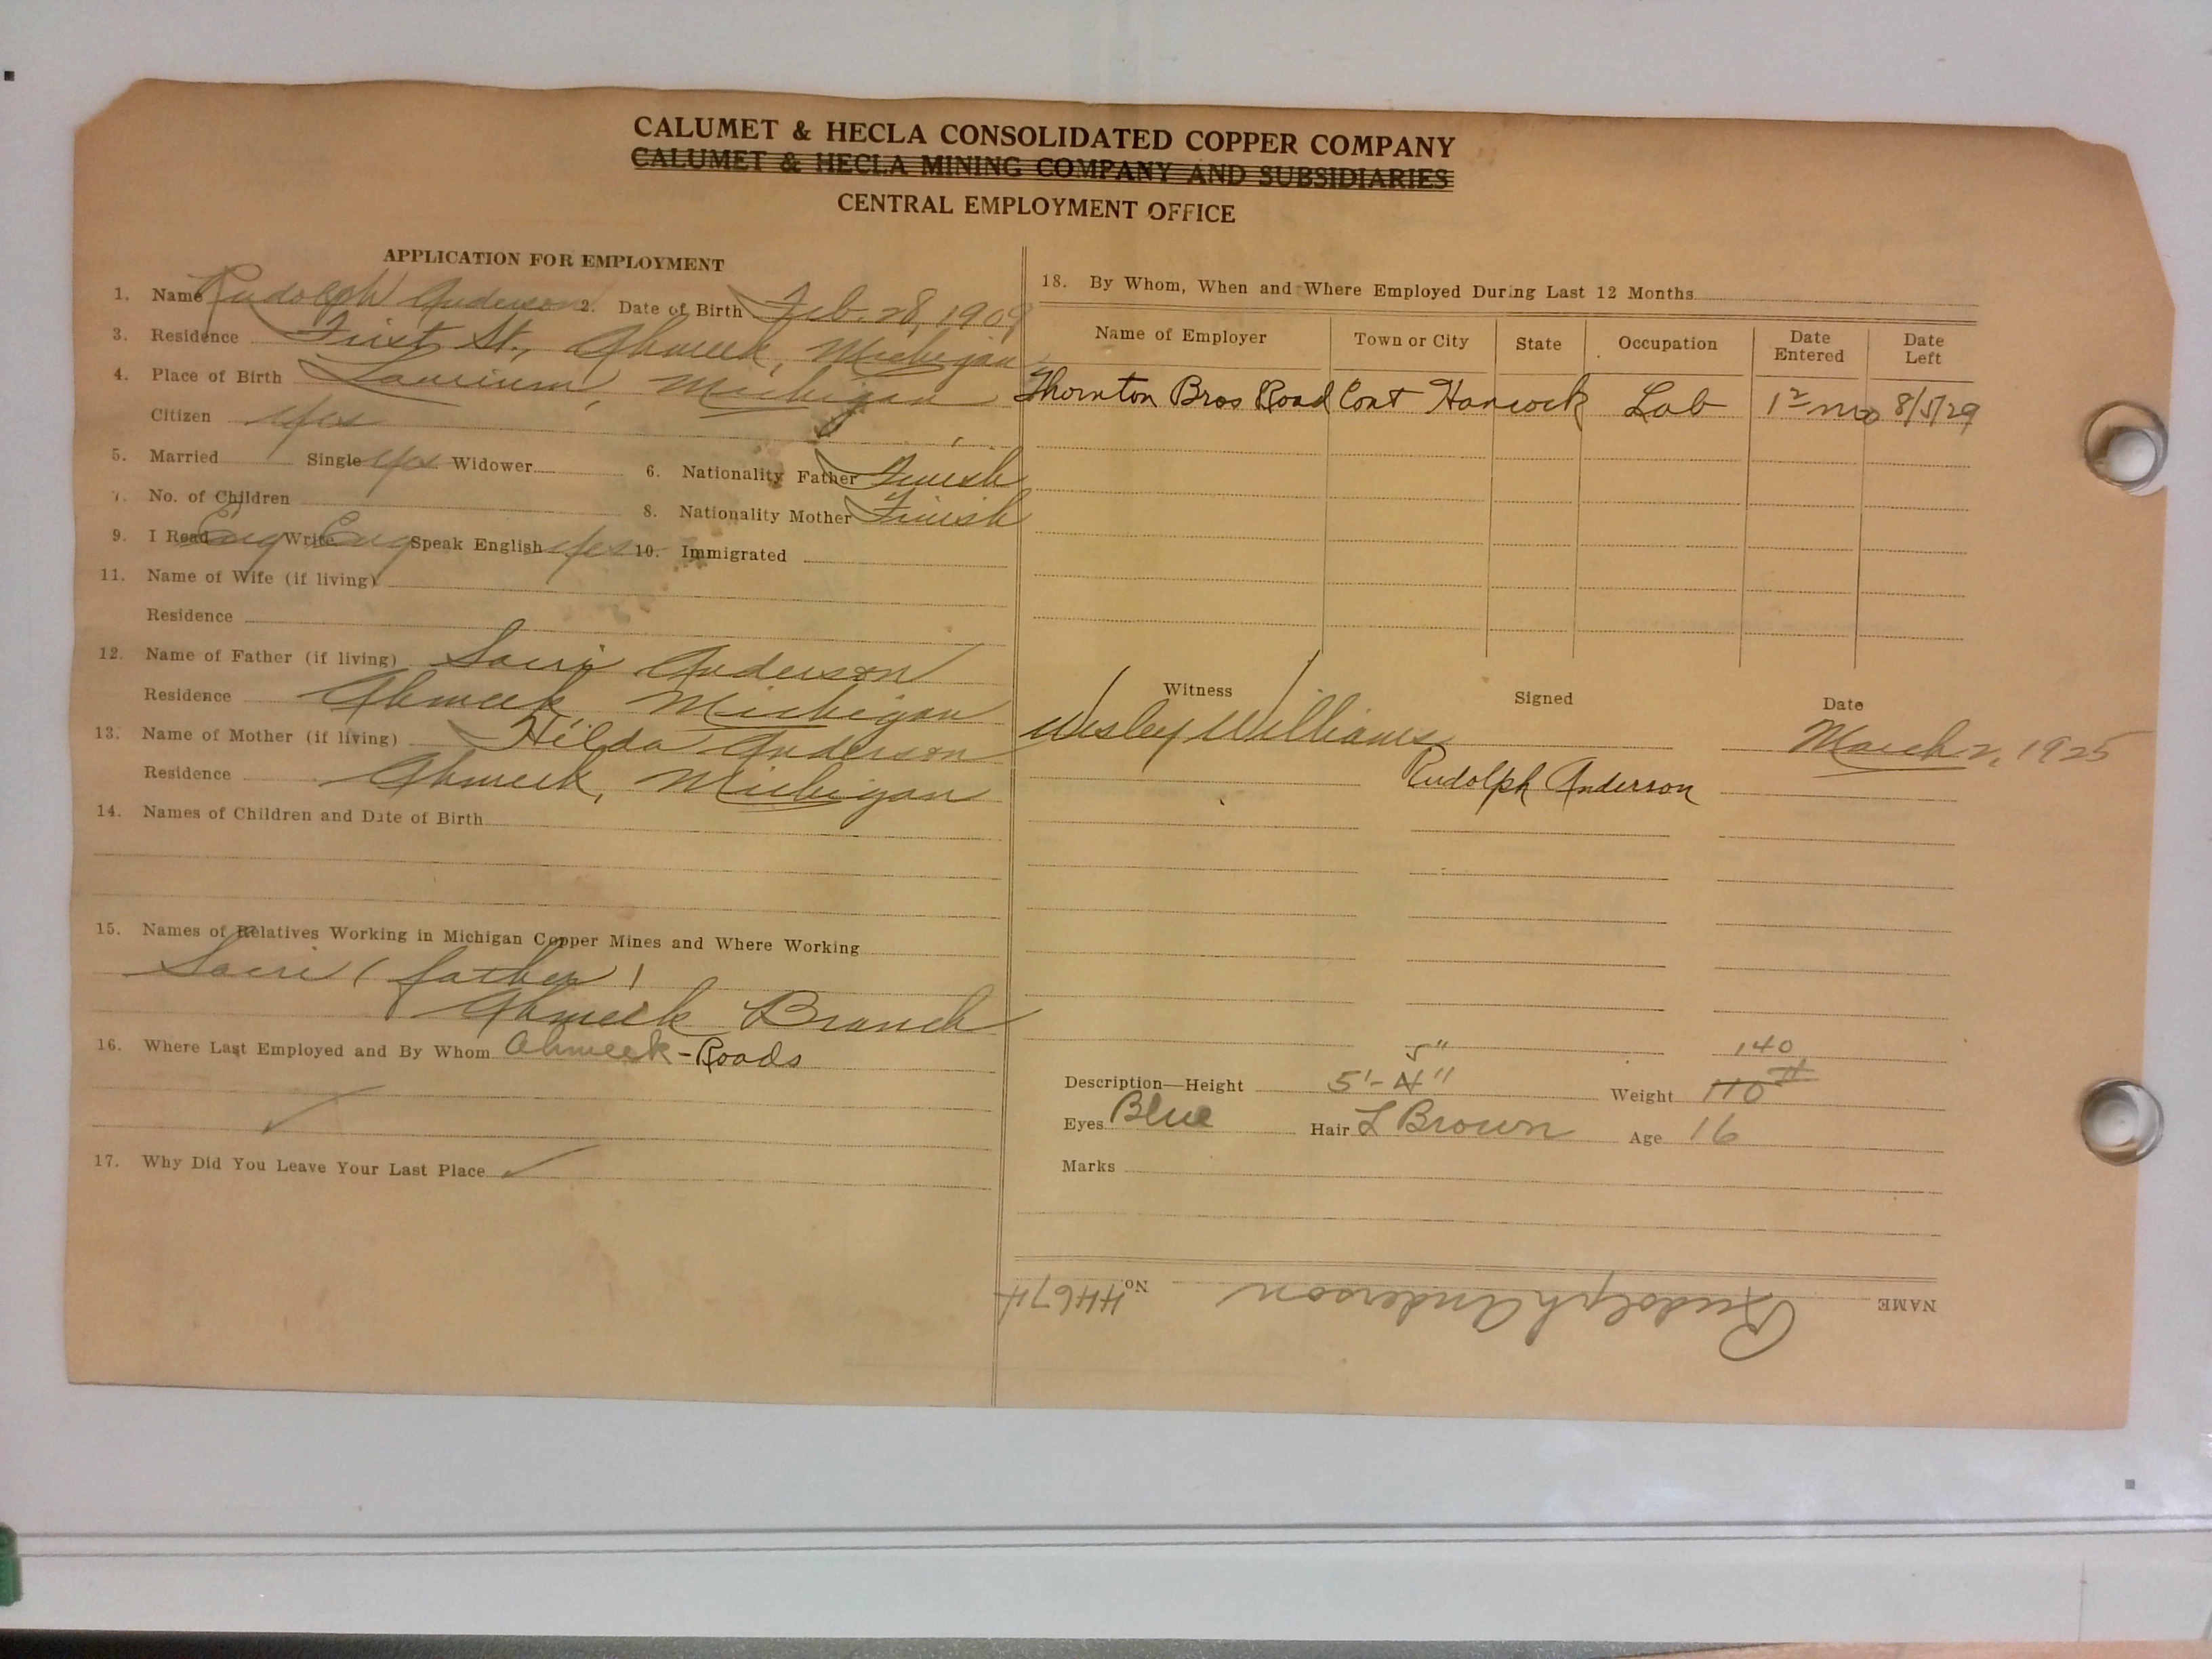 CALUMET & HECLA CONSOLIDATED COPPER COMPANY
CALUMET & HECLA MINING COMPANY AND SUBSIDIARIES
CENTRAL EMPLOYMENT OFFICE
APPLICATION FOR EMPLOYMENT
1. Name Rudolph Anderson 2. Date of Birth Feb. 28, 1909
3. Residence First St., Ahmeek, Michigan
4. Place of Birth Laurium, Michigan
Citizen Yes
5. Married Single yes Widower 6. Nationality Father Finish
7. No. of Children 8. Nationality Mother Finish
9. I Read Eng Write Eng Speak English Yes 10. Immigrated
11. Name of Wife (if living)
Residence
12. Name of Father (if living) Anderson
Residence Ahmeek Michigan
13. Name of Mother (if living) Hilda Anderson
Residence Ahmeek, Michigan
14. Names of Children and Date of Birth
15. Names of Relatives Working in Michigan Copper Mines and Where Working
(father)
Ahmeek Branch
16. Where Last Employed and By Whom Ahmeek - Roads
17. Why Did You Leave Your Last Place
18. By Whom, When and Where Employed During Last 12 Months
Name of Employer Town or City State Occupation Date Entered Date Left
Thornton Bros Road Cont Hancock Lab 8/5/29
Witness Signed Date
Wesley Williams March 2, 1925
Rudolph Anderson
5" 140
Description—Height 5'-4" Weight 110 #
Eyes Blue Hair L Brown Age 16
Marks
NAME Rudolph Anderson No. 44674